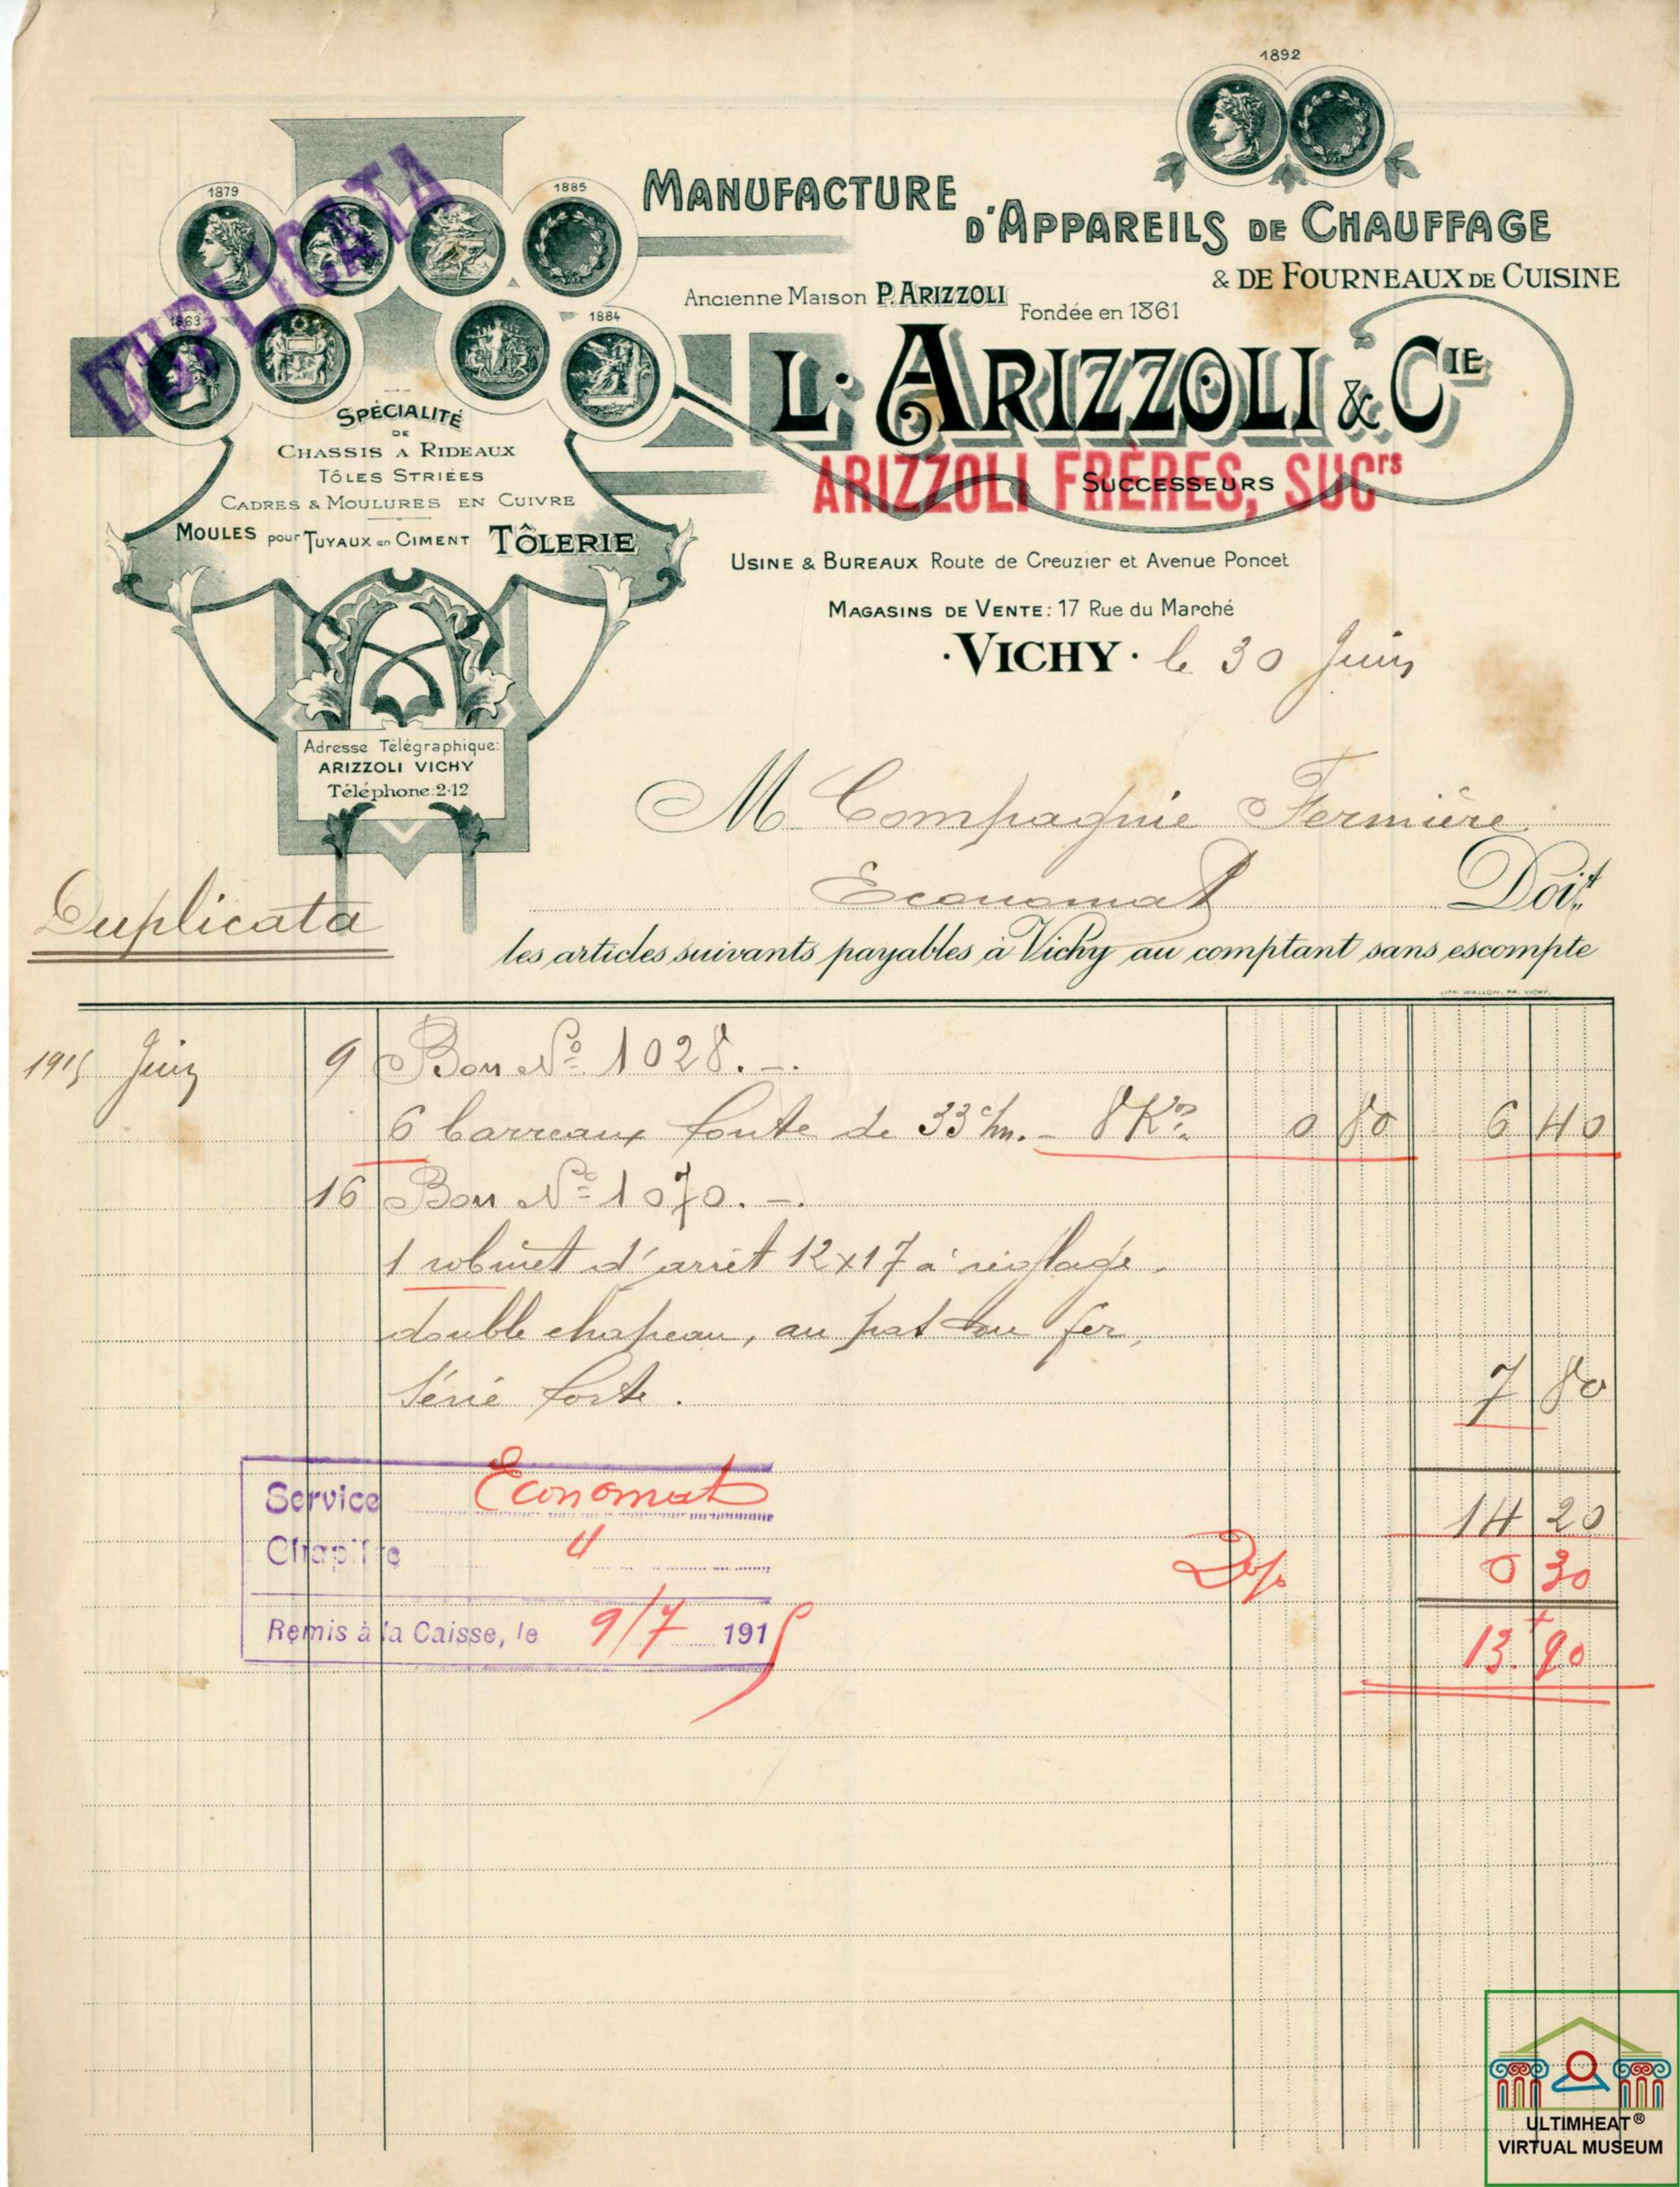 1892
1879
1885
DUPLICATA
1863
1884
MANUFACTURE
D'APPAREILS DE CHAUFFAGE
& DE FOURNEAUX DE CUISINE
Ancienne Maison P. ARIZZOLI
Fondée en 1861
L. ARIZZOLI & CIE
ARIZZOLI FRÈRES, SUCrs
SUCCESSEURS
SPÉCIALITÉ
DE
CHASSIS A RIDEAUX
TÔLES STRIÉES
CADRES & MOULURES EN CUIVRE
MOULES pour TUYAUX en CIMENT TÔLERIE
USINE & BUREAUX Route de Creuzier et Avenue Poncet
MAGASINS DE VENTE: 17 Rue du Marché
· VICHY · le 30 Juin
Adresse Télégraphique:
ARIZZOLI VICHY
Téléphone: 2-12
M Compagnie Fermière
Economat Doit
Duplicata
les articles suivants payables à Vichy au comptant sans escompte
LITH. WALLON, FR. VICHY.
1915 Juin 9 Bon No 1028. -.
6 barreaux fonte de 33 c/m. - 8 Kos 0 80 6 40
16 Bon No 1070. -.
1 robinet d'arrêt 12x17 à réglage
double chapeau, au pas du fer,
Série forte. 7 80
Service Economat
14 20
Chapitre 4
0 30
Remis à la Caisse, le 9/7 1915
13.90
ULTIMHEAT®
VIRTUAL MUSEUM